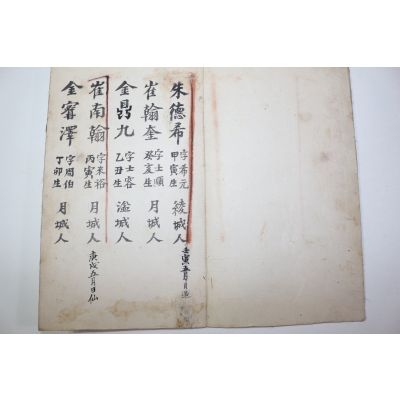 朱德希 字希元 甲寅生 綾城人 壬寅五月
崔翰奎 字士順 癸亥生 月城人
金鼎九 字士容 乙丑生 盆城人
崔南翰 字米裕 丙寅生 月城人 庚戌五月日仙
金容澤 字周伯 丁卯生 月城人